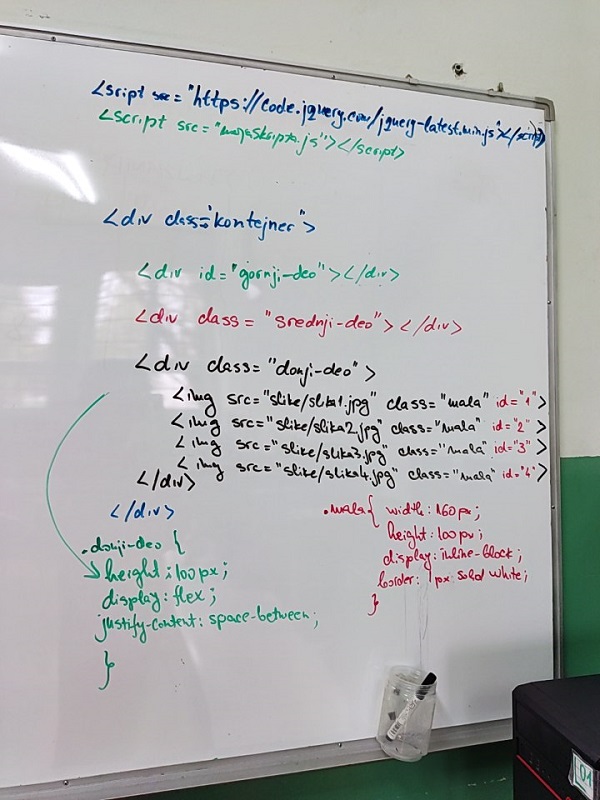 <script src="https://code.jquery.com/jquery-latest.min.js"></script>
<script src="mojaSkripta.js"></script>
<div class="kontejner">
<div id="gornji-deo"></div>
<div class="srednji-deo"></div>
<div class="donji-deo">
<img src="slike/slika1.jpg" class="mala" id="1">
<img src="slike/slika2.jpg" class="mala" id="2">
<img src="slike/slika3.jpg" class="mala" id="3">
<img src="slike/slika4.jpg" class="mala" id="4">
</div>
</div>
.donji-deo {
height:100px;
display:flex;
justify-content: space-between;
}
.mala{ width:160px;
height:100px;
display:inline-block;
border: 1px solid white;
}
01